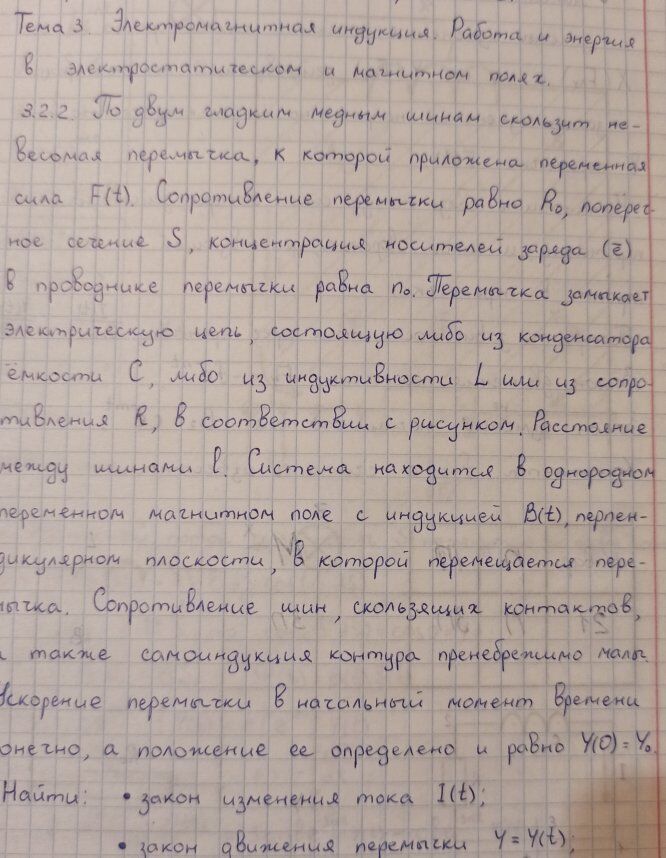 Тема 3. Электромагнитная индукция. Работа и энергия
в электростатическом и магнитном полях.
3.2.2. По двум гладким медным шинам скользит не-
весомая перемычка, к которой приложена переменная
сила F(t). Сопротивление перемычки равно R₀, попереч-
ное сечение S, концентрация носителей заряда (ē)
в проводнике перемычки равна n₀. Перемычка замыкает
электрическую цепь, состоящую либо из конденсатора
ёмкости C, либо из индуктивности L или из сопро-
тивления R, в соответствии с рисунком. Расстояние
между шинами l. Система находится в однородном
переменном магнитном поле с индукцией B(t), перпен-
дикулярном плоскости, в которой перемещается пере-
мычка. Сопротивление шин, скользящих контактов,
а также самоиндукция контура пренебрежимо малы.
Ускорение перемычки в начальный момент времени
конечно, а положение ее определено и равно Y(0) = Y₀.
Найти: • закон изменения тока I(t);
• закон движения перемычки Y = Y(t);